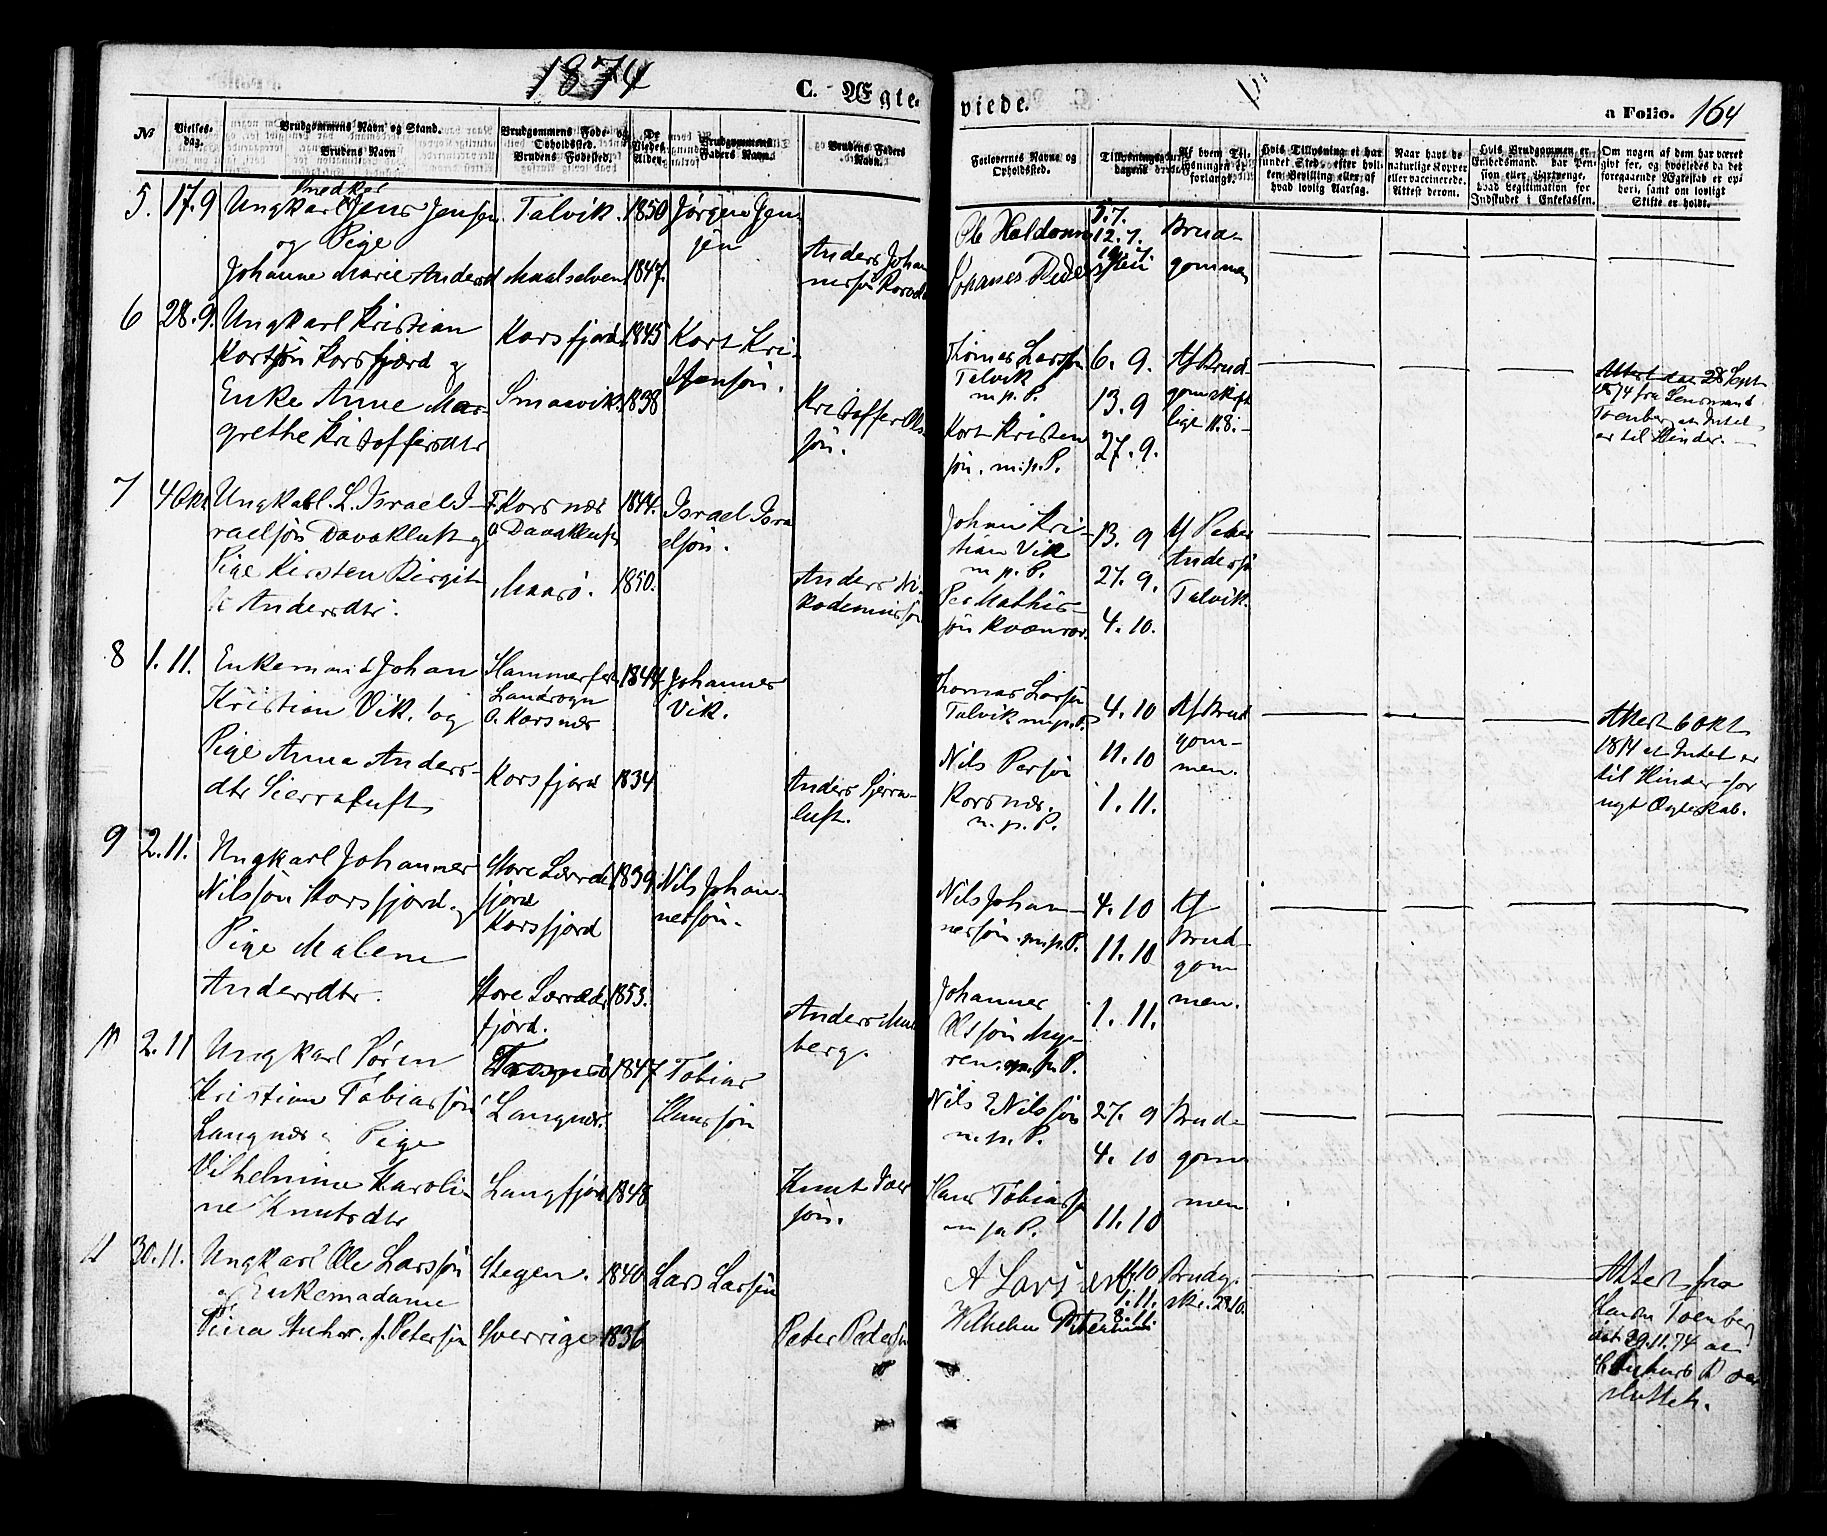 1874
C. Ægte-
viede.
a Folio. 164
No
Vielses-
dag.
Brudgommens Navn og Stand.
Brudens Navn
Brudgommens Føde- og
Opholdssted.
Brudens Fødested.
De
Viedes
Alder
Brudgommens
Faders Navn.
Brudens Faders
Navn.
Forlovernes Navne og
Opholdssted.
Tillysnings-
dagene
Af hvem Til-
lysningen er
forlangt.
Hvis Tillysning ei har
fundet Sted, efter hvil-
ken Bevilling eller af
hvad lovlig Aarsag.
Naar havt de
naturlige Kopper
eller vaccinerede.
Attest derom.
Hvis Brudgommen er
Embedsmand, har Pen-
sion eller Vartpenge,
hvad Legitimation for
Indskudet i Enkekassen.
Om nogen af dem har været
givt før, og hvorledes da det
foregaaende Ægteskab er op-
hørt, samt om lovligt
Skifte er holdt.
5. 17.9
Snedker
Ungkarl Jens Jensen
og Pige
Johanne Marie Andersd
Talvik.
Maalselven
1850
1847.
Jørgen Jen
sen
Anders Johan
nessøn
Ole Haldorsen
5.7.
12.7.
Brud-
gommen
6 28.9.
Ungkarl Kristian
Kortsøn Korsfjord og
Enke Anne Mar-
grethe Kristoffersdtr
Korsfjord
Smaavik
1845
1838
Kort Kri-
stensøn.
Kristoffer Ols
søn.
Thomas Larssøn
Talvik
m.p.P.
Kort Kristen
søn. m.p.P.
6. 9.
13. 9
27. 9.
Af Brud-
gom skift
ligt 11.8.
Attest dat 28 Sept
1874 fra Lensmand
Toenberg at Intet
er til Hinder.
7 4 Okt
Ungkarl. L. Israel I-
raelsøn Davakluft og
Pige Kirsten Birgit
te Andersdtr.
F. Korsnæs
O. Davakluft
Maasø.
1844.
1850.
Israel Isra
elsøn.
Anders Ni-
kodemussøn
Johan Kri-
stian Vik
m.p.P.
Per Mathis-
søn
13. 9
27. 9.
4. 10.
Af Peder
Anderssøn
Talvik.
8 1.11.
Enkemand Johan
Kristian Vik. og
Pige Anna Anders-
dtr Sierraluft
Hammerfest
Landsogn
O. Korsnæs
Korsfjord
1844
1834
Johannes
Vik.
Anders Sjerra-
luft.
Thomas Larsøn
Talvik m.p.P.
Nils Persøn
Korsnæs.
m.p.P.
4. 10
11. 10
1. 11.
Af Brud
gom-
men.
Attest 6 Okt
1874 at Intet er
til Hinder for
nyt Ægteskab.
9 2.11.
Ungkarl Johannes
Nilssøn Korsfjord og
Pige Malene
Andersdtr.
Store Lerres
fjord
Korsfjord
Store Lerres
fjord.
1839
1853.
Nils Johan-
nessøn.
Anders
berg.
Nils Johan-
nessøn. m.p.P.
Johannes
Olssøn Myr-
ren. m.p.P.
4. 10
11. 10
1. 11.
Af
Brud-
gom
men.
2.11
Ungkarl Søren
Kristian Tobiassøn
Langnæs og Pige
Vilhelmine Karoli-
ne Knutsdtr
Langnæs.
Langfjord
1847
1848
Tobias
Hanssøn
Knut
søn.
Nils Nilssøn
m.p.P.
Hans Tobiassøn
m.p.P.
27. 9
4. 10
11. 10
Brud-
gom
men
30.11.
Ungkarl Ole Larssøn
og Enkemadame
f. Petersøn
Stegen.
Sverrige
1840
1836
Lars Larsøn
Peter Pedersøn
A Lars
Wilhelm
1.11.
8.11.
Brudg.
Attest fra
Toenberg
dat 29.11.74 at
sluttet.